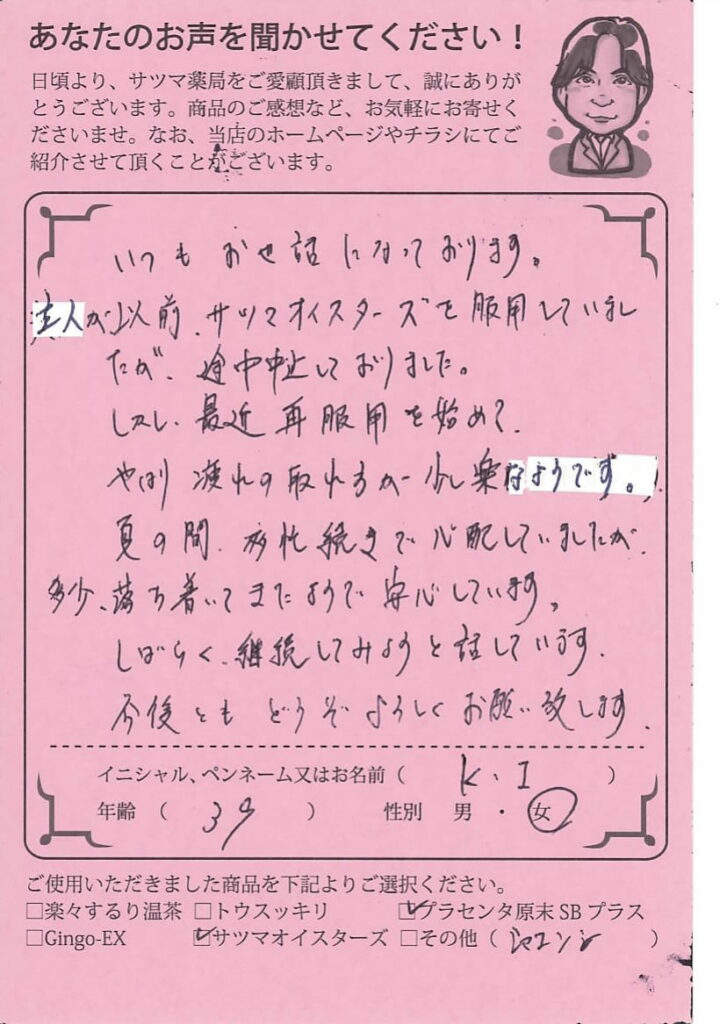 あなたのお声を聞かせてください！
日頃より、サツマ薬局をご愛顧頂きまして、誠にありが
とうございます。商品のご感想など、お気軽にお寄せく
ださいませ。なお、当店のホームページやチラシにてご
紹介させて頂くことがございます。
いつもお世話になっております。
主人が以前、サツマオイスターズを服用していまし
たが、途中中止しておりました。
しかし、最近再服用を始めて、
やはり疲れの取れ方が少し楽なようです。
夏の間、 続きで心配していましたが、
多少、落ち着いてきたようで安心しています。
しばらく、継続してみようと話しています。
今後ともどうぞよろしくお願い致します。
イニシャル、ペンネーム又はお名前（ K・I ）
年齢（ 39 ） 性別 男 ・ 女
ご使用いただきました商品を下記よりご選択ください。
□楽々するり温茶 □トウスッキリ ☑プラセンタ原末 SB プラス
□Gingo-EX ☑サツマオイスターズ □その他（ ）